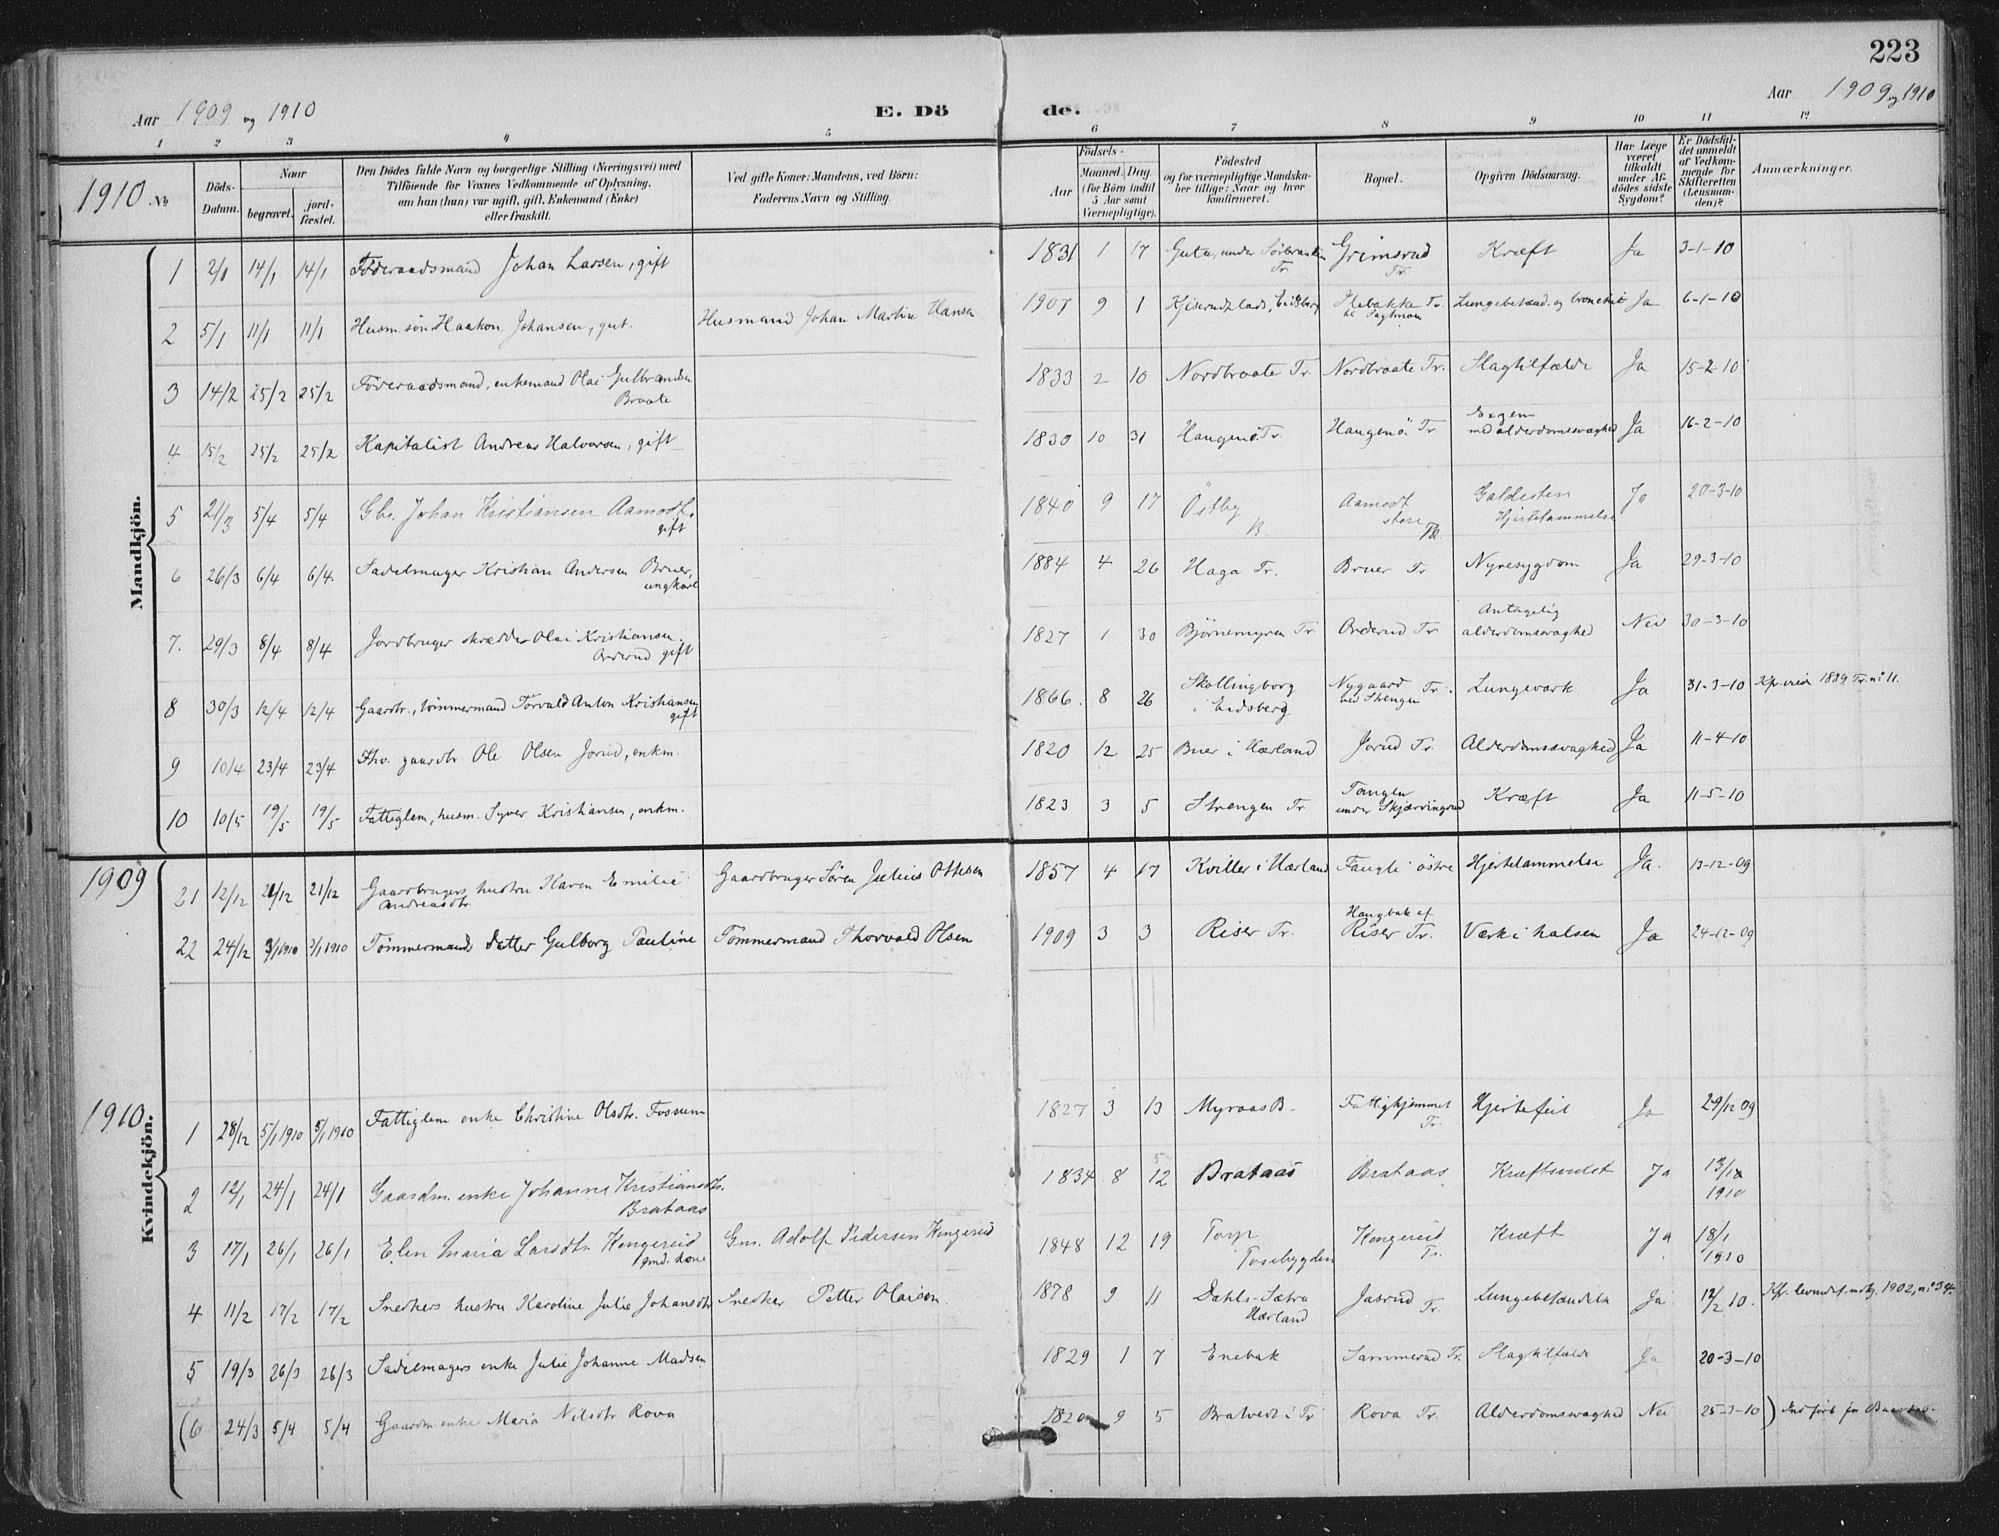 223
Aar 1909 og 1910
E. Dö
de.
Aar 1909 og 1910
1 2 3 4 5 6 7 8 9 10 11 12
1910 No
Döds-Datum.
Naar
begravet.
jord-fæstet.
Den Dödes fulde Navn og borgerlige Stilling (Næringsvei) med
Tilföiende for Voxnes Vedkommende af Oplysning,
om han (hun) var ugift, gift, Enkemand (Enke)
eller fraskilt.
Ved gifte Koner: Mandens, ved Börn:
Faderens Navn og Stilling.
Födsels-
Aar
Maaned. Dag.
(for Börn indtil
5 Aar samt
Værnepligtige).
Födested
og for værnepligtige Mandska-
ber tillige: Naar og hvor
konfirmeret.
Bopæl.
Opgiven Dödsaarsag.
Har Læge
været
tilkaldt
under Af-
dödes sidste
Sygdom?
Er Dödsfal-
det anmeldt
af Vedkom-
mende for
Skifteretten
(Lensman-
den)?
Anmærkninger.
Mandkjön.
1 2/1 14/1 14/1 Föderaadsmand Johan Larsen, gift 1831 1 17 under Sörbraaten Tr. Grimsrud Tr. Kræft Ja 3-1-10
2 5/1 11/1 11/1 Husm.sön Haakon Johansen, gut. Husmand Johan Martin Hansen 1907 9 1 Eidsberg Plebakke Tr. Lungebetænd. og bronckit Ja 6-1-10
3 14/2 25/2 25/2 Föderaadsmand, enkemand Olai Gulbrandsen Braate 1833 2 10 Nordbraate Tr. Nordbraate Tr. Slagtilfælde Ja 15-2-10
4 15/2 25/2 25/2 Kapitalist Andreas Halvorsen, gift 1830 10 31 Haugenö. Tr. Haugenö. Tr Exzem med alderdomssvaghed Ja 16-2-10
5 21/3 5/4 5/4 Gbr. Johan Kristiansen Aamodt, gift 1840 9 17 Östby B. Aamodt store Tr. Galdesten Hjertelammelse Ja 20-3-10
6 26/3 6/4 6/4 Sadelmager Kristian Andersen Bruer, ungkarl 1884 4 26 Haga Tr. Bruer Tr Nyresygdom Ja 29-3-10
7. 29/3 8/4 8/4 Jordbruger skrædder Olai Kristiansen Orderud gift 1827 1 30 Björnemyren Tr. Orderud Tr Antagelig alderdomssvaghed Nei 30-3-10
8 30/3 12/4 12/4 Gaardbr., tömmermand Torvald Anton Kristiansen gift 1866. 8 26 Skallingborg i Eidsberg Nygaard ved Strengen Tr. Lungeværk Ja 31-3-10 1889 Tr. no 11.
9 10/4 23/4 23/4 Fhv. gaardbr Ole Olsen Jorud, enkm. 1820 12 25 Buer i Hærland Jorud Tr. Alderdomssvaghed Ja 11-4-10
10 10/5 19/5 19/5 Fattiglem, husm. Syver Kristiansen, enkm. 1823 3 5 Strengen Tr Tangen under Skjærvingrud Kræft Ja 11-5-10
1909
21 12/12 21/12 21/12 Gaardbrugers hustru Karen Emilie Andreasdtr. Gaardbruger Sören Julius Ottesen 1857 4 17 Kviller i Hærland östre Hjertelammelse Ja. 13-12-09
22 24/12 3/1 1910 3/1 1910 Tömmermands datter Gulborg Pauline Tömmermand Thorvald Olsen 1909 3 3 Riser Tr. Haugbak af Riser Tr. Værk i halsen Ja 24-12-09
1910.
Kvindekjön.
1 28/12 5/1 1910 5/1 1910 Fattiglem enke Christine Olsdtr. Fossum 1827 3 13 Myraas B. Fattighjemmet Tr. Hjertefeil Ja 29/12 09
2 12/1 24/1 24/1 Gaardm. enke Johanne Kristiansdtr. Brataas 1834 8 12 Brataas Brataas Kræftsvulst Ja 13/1 1910
3 17/1 26/1 26/1 Elen Maria Larsdtr. Hengereid gmd. kone Gm. Adolf Pedersen Hengereid 1848 12 19 Torp Tosebygden Hengereid Tr. Kræft Ja 18/1 1910
4 11/2 17/2 17/2 Snedkers hustru Karoline Julie Johansdtr Snedker Petter Olaisen. 1878 9 11 Dahls-Sætra Hærland Jasrud Tr. Lungebetændelse Ja 12/2 10. 1902, no 34
5 19/3 26/3 26/3 Sadelmagers enke Julie Johanne Madsen 1829 1 7 Enebak Sammerud Tr. Slagtilfælde Ja 20-3-10
(6 24/3 5/4 5/4 Gaardm. enke Maria Nilsdtr Rova 1820 9 5 Bratvedt i Tr. Rova Tr. Alderdomssvaghed Nei 25-3-10 ) Indfört fra Baastad.